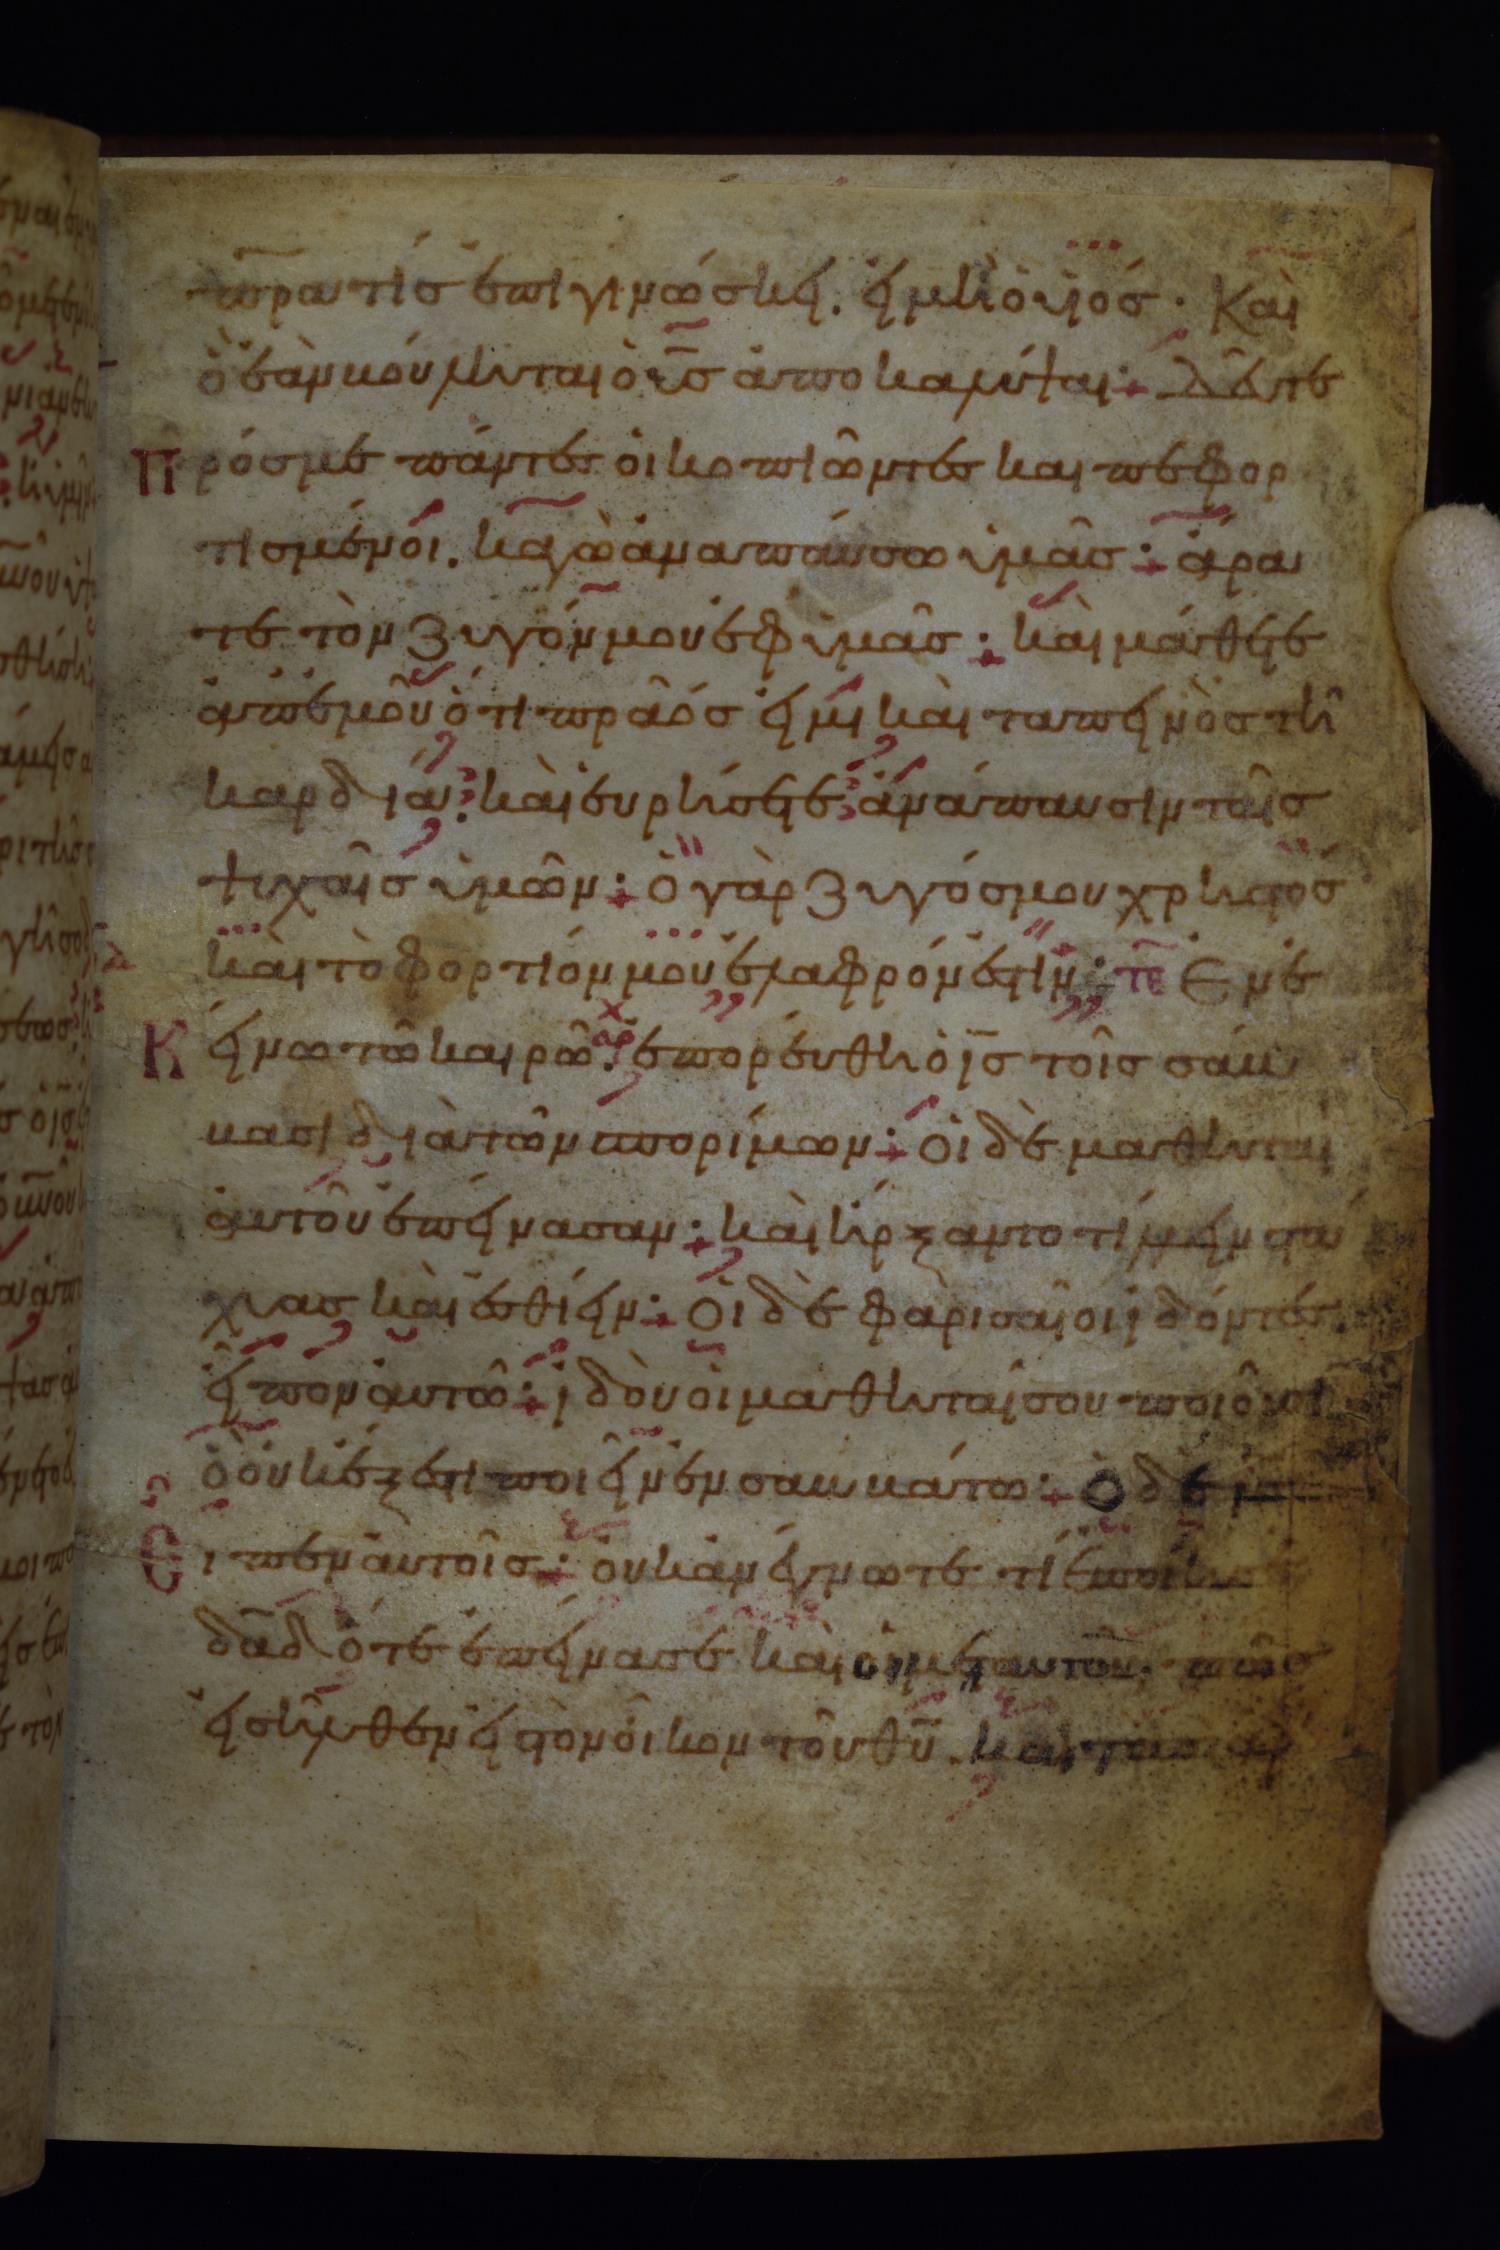 πρα τίσ ἐπιγινώσκει. εἰ μὴ ὁ ὑιόσ. Καὶ
ὁ ἐὰν κουληται ὁ υ̅σ̅ ἀποκαλύψαι: Δεῦτε
Πρόσ με πάντεσ οἱ κοπιῶντεσ και πεφορ
τισμένοι. καγὼ ἀναπάυσω ὑμᾶσ: ἄρα
τε τὸν ζυγόν μου ἐφ ὑμᾶσ: καὶ μάθετε
ἀπ ἐμοῦ ὅτι πρᾶόσ εἰμι καὶ ταπεινὸσ τῆ
καρδία: καὶ ἑυρήσετε ἀνάπαυσιν ταῖσ
ψυχαῖσ ὑμῶν: ὁ γὰρ ζυγόσ μου χρηστόσ
καὶ τὸ φορτίον μου ἐλαφρόν ἐστιν: τε Ἐν ἐ
Κείνω τῶ καιρῶ. ἐπορέυθη ὁ ι̅σ̅ τοῖσ σάκ
κασι διὰ τῶν σπορίμων: Οἱ δὲ μαθηται
ἀυτοῦ ἐπείνασαν: καὶ ἤρξαντο τίλλειν στά
χυασ καὶ ἐσθίειν: Οἱ δὲ φαρισαῖοι ἰδόντεσ.
εἶπον ἀυτῶ: ἰδοὺ οἱ μαθηταί σου ποιοῦσι
ὁ ὀυκ ἔξεστι ποιεῖν ἐν σακκάτω: Ὁ δὲ
Εἶπεν ἀυτοῖσ: ὀυκ ἀνέγνωτε τί ἐποίησε
δα̅δ ὅτε ἐπείνασε καὶ οἱ μετ αυτοῦ. πῶσ
εἰσῆλθεν εἰσ τὸν ὀῖκον τοῦ θυ̅. καὶ τοὺσ ἀρ